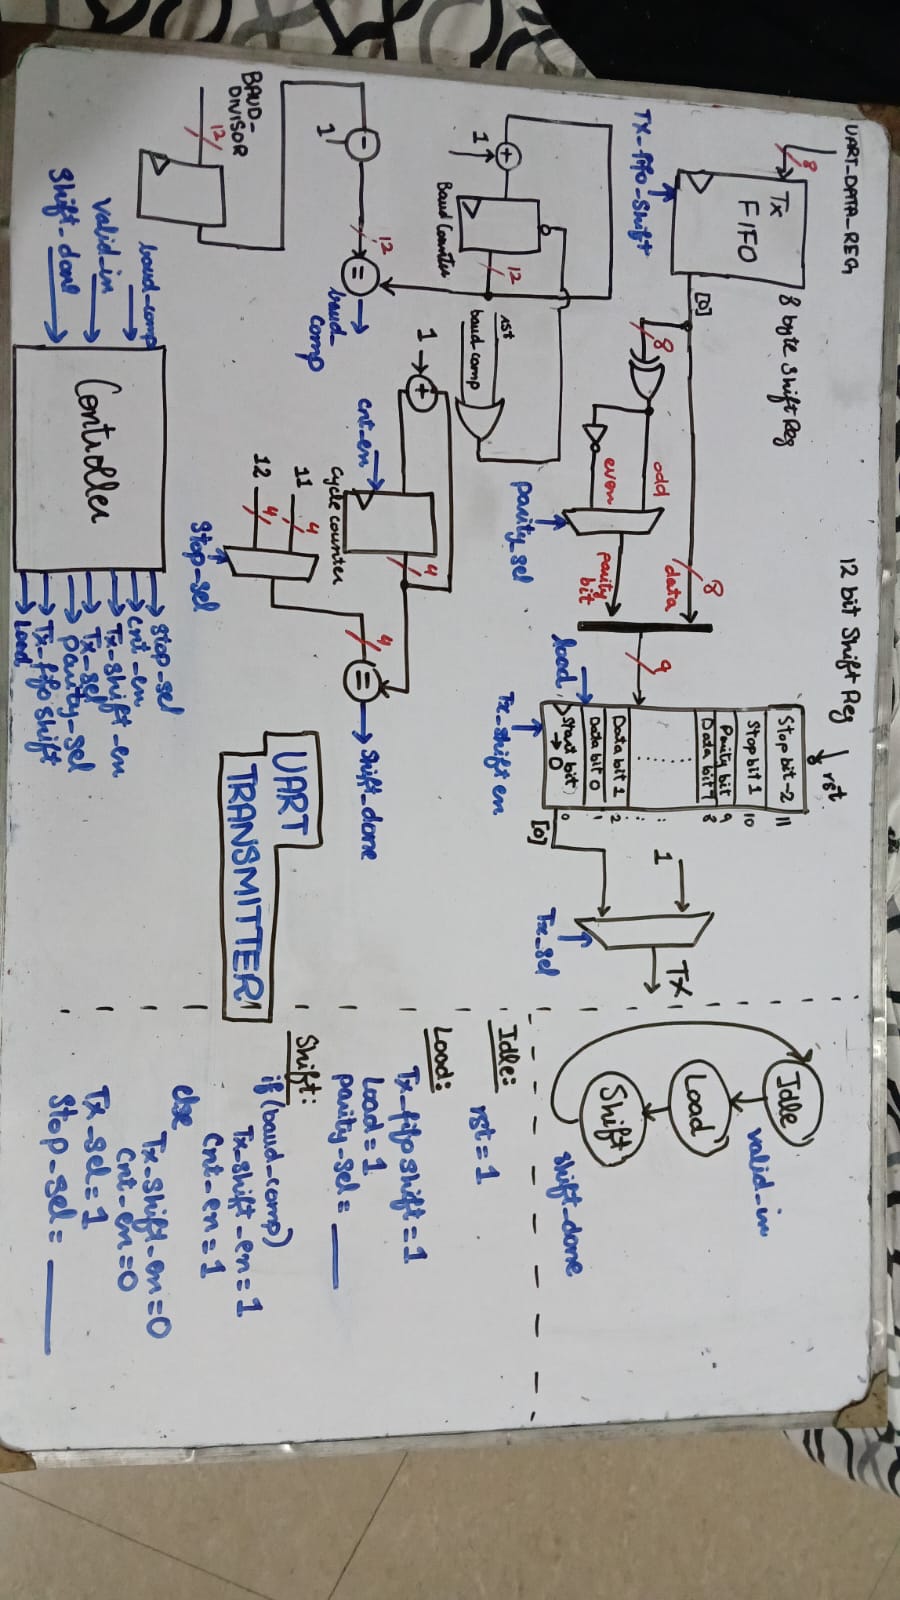 UART-DATA-REG
8
Tx
FIFO
8 byte Shift Reg
TX-fifo-Shift
[0]
8
odd
even
parity-sel
parity
bit
8
data
9
12 bit Shift Reg
rst
load
Tx-shift en
Stop bit-2
11
Stop bit 1
10
Parity bit
9
Data bit 7
8
:
Data bit 1
2
Data bit 0
1
Start bit
→ 0
0
[0]
1
Tx-sel
TX
1
+
Baud Counter
12
rst
baud-comp
BAUD-
DIVISOR
12
-
1
12
=
baud-
comp
1
+
cnt-en
Cycle counter
4
11
4
12
4
Stop-sel
4
=
Shift-done
baud-comp
valid-in
Shift-done
Controller
stop-sel
cnt-en
Tx-shift-en
Tx-sel
parity-sel
Tx-fifo shift
Load
UART
TRANSMITTER
Idle
valid-in
Load
Shift
shift-done
Idle:
rst = 1
Load:
Tx-fifo shift = 1
Load = 1
parity-sel = ___
Shift:
if (baud-comp)
Tx-shift-en = 1
Cnt-en = 1
else
Tx-shift-en = 0
Cnt-en = 0
Tx-sel = 1
Stop-sel = ___